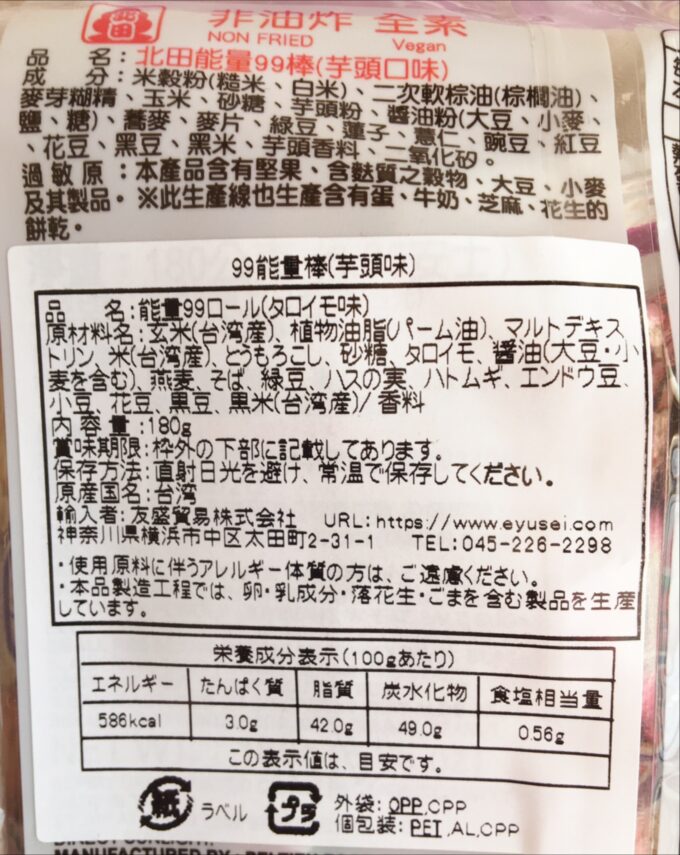 北田
非油炸 全素
NON FRIED Vegan
品名:北田能量99棒(芋頭口味)
成分:米穀粉(糙米、白米)、二次軟棕油(棕櫚油)、
麥芽糊精、玉米、砂糖、芋頭粉、醬油粉(大豆、小麥、
鹽、糖)、蕎麥、麥片、綠豆、蓮子、薏仁、豌豆、紅豆
、花豆、黑豆、黑米、芋頭香料、二氧化矽。
過敏原:本產品含有堅果、含麩質之穀物、大豆、小麥
及其製品。※此生產線也生產含有蛋、牛奶、芝麻、花生的
餅乾。
99能量棒(芋頭味)
品名:能量99ロール(タロイモ味)
原材料名:玄米(台湾産)、植物油脂(パーム油)、マルトデキス
トリン、米(台湾産)、とうもろこし、砂糖、タロイモ、醤油(大豆・小
麦を含む)、燕麦、そば、緑豆、ハスの実、ハトムギ、エンドウ豆、
小豆、花豆、黒豆、黒米(台湾産)/香料
内容量:180g
賞味期限:枠外の下部に記載してあります。
保存方法:直射日光を避け、常温で保存してください。
原産国名:台湾
輸入者:友盛貿易株式会社 URL:https://www.eyusei.com
神奈川県横浜市中区太田町2-31-1 TEL:045-226-2298
・使用原料に伴うアレルギー体質の方は、ご遠慮ください。
・本品製造工程では、卵・乳成分・落花生・ごまを含む製品を生産
しています。
栄養成分表示(100gあたり)
エネルギー たんぱく質 脂質 炭水化物 食塩相当量
586kcal 3.0g 42.0g 49.0g 0.56g
この表示値は、目安です。
紙 ラベル プラ 外袋:OPP,CPP
個包装:PET,AL,CPP